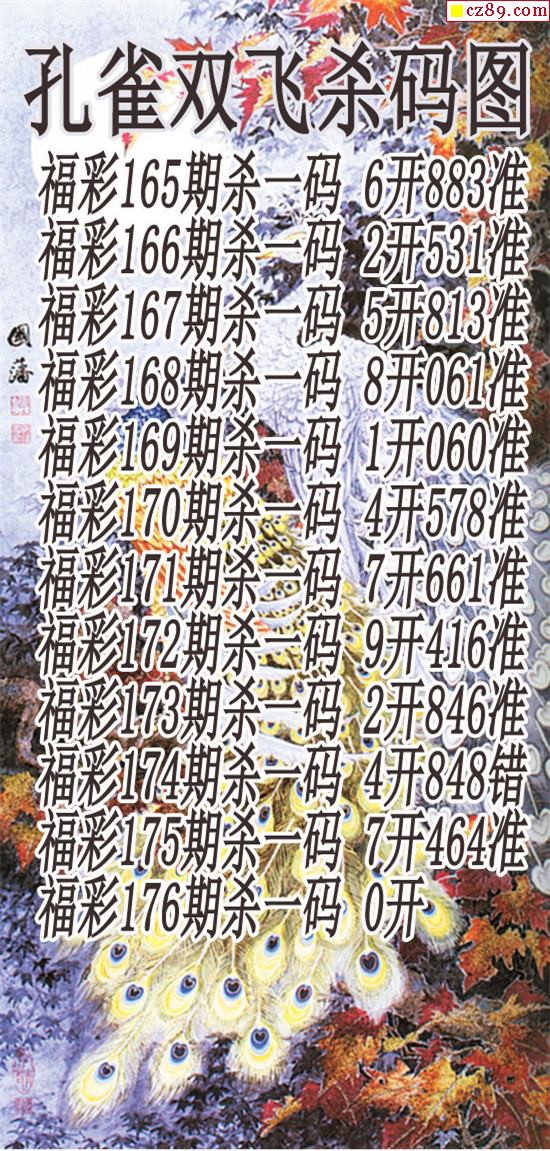 cz89.com
孔雀双飞杀码图
福彩165期杀一码 6开883准
福彩166期杀一码 2开531准
福彩167期杀一码 5开813准
福彩168期杀一码 8开061准
福彩169期杀一码 1开060准
福彩170期杀一码 4开578准
福彩171期杀一码 7开661准
福彩172期杀一码 9开416准
福彩173期杀一码 2开846准
福彩174期杀一码 4开848错
福彩175期杀一码 7开464准
福彩176期杀一码 0开
國藩